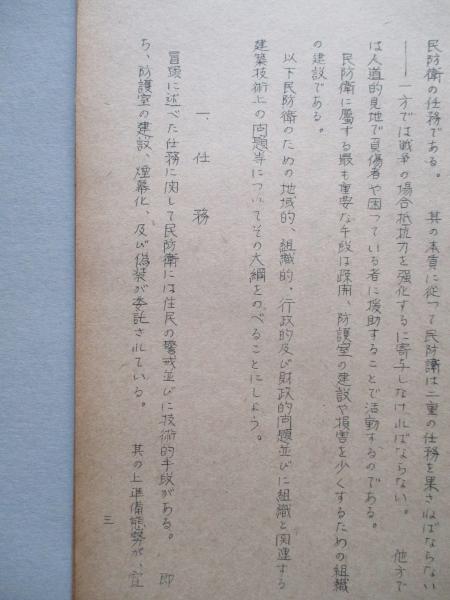 民防衛の任務である。 其の本質に従って民防衛は二重の任務を果さねばならない
――一方では戦争の場合抵抗力を強化するに寄与しなければならない。 他方で
は人道的見地で負傷者や困っている者に援助することで活動するのである。
民防衛に属する最も重要な手段は疎開、防護室の建設や損害を少くするための組織
の建設である。
以下民防衛のための地域的、組織的、行政的及び財政的問題並びに組織と関連する
建築技術上の問題等についてその大綱をのべることにしよう。
一、任務
冒頭に述べた任務に関して民防衛には住民の警戒並びに技術的手段がある。 即
ち、防護室の建設、煙幕化、及び偽装が委託されている。 其の上準備態勢が、
三